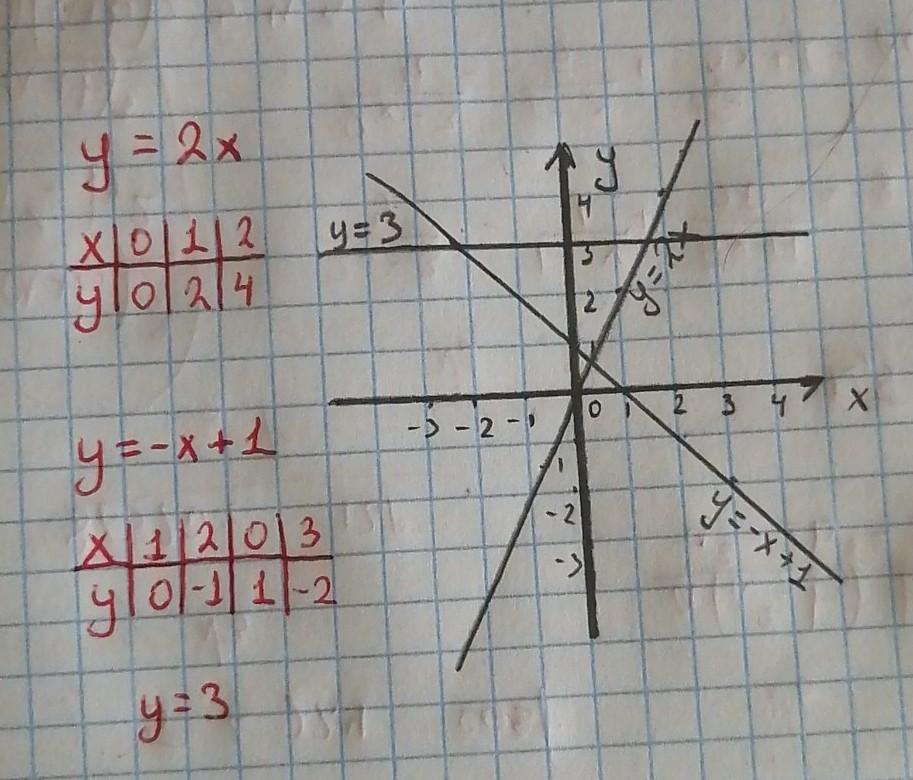 y = 2x
x 0 1 2
y 0 2 4
y = -x + 1
x 1 2 0 3
y 0 -1 1 -2
y = 3
y
4
y = 3
3
y =
2
1
-3 -2 -1 0 1 2 3 4 x
1
-2
-3
y = -x + 1